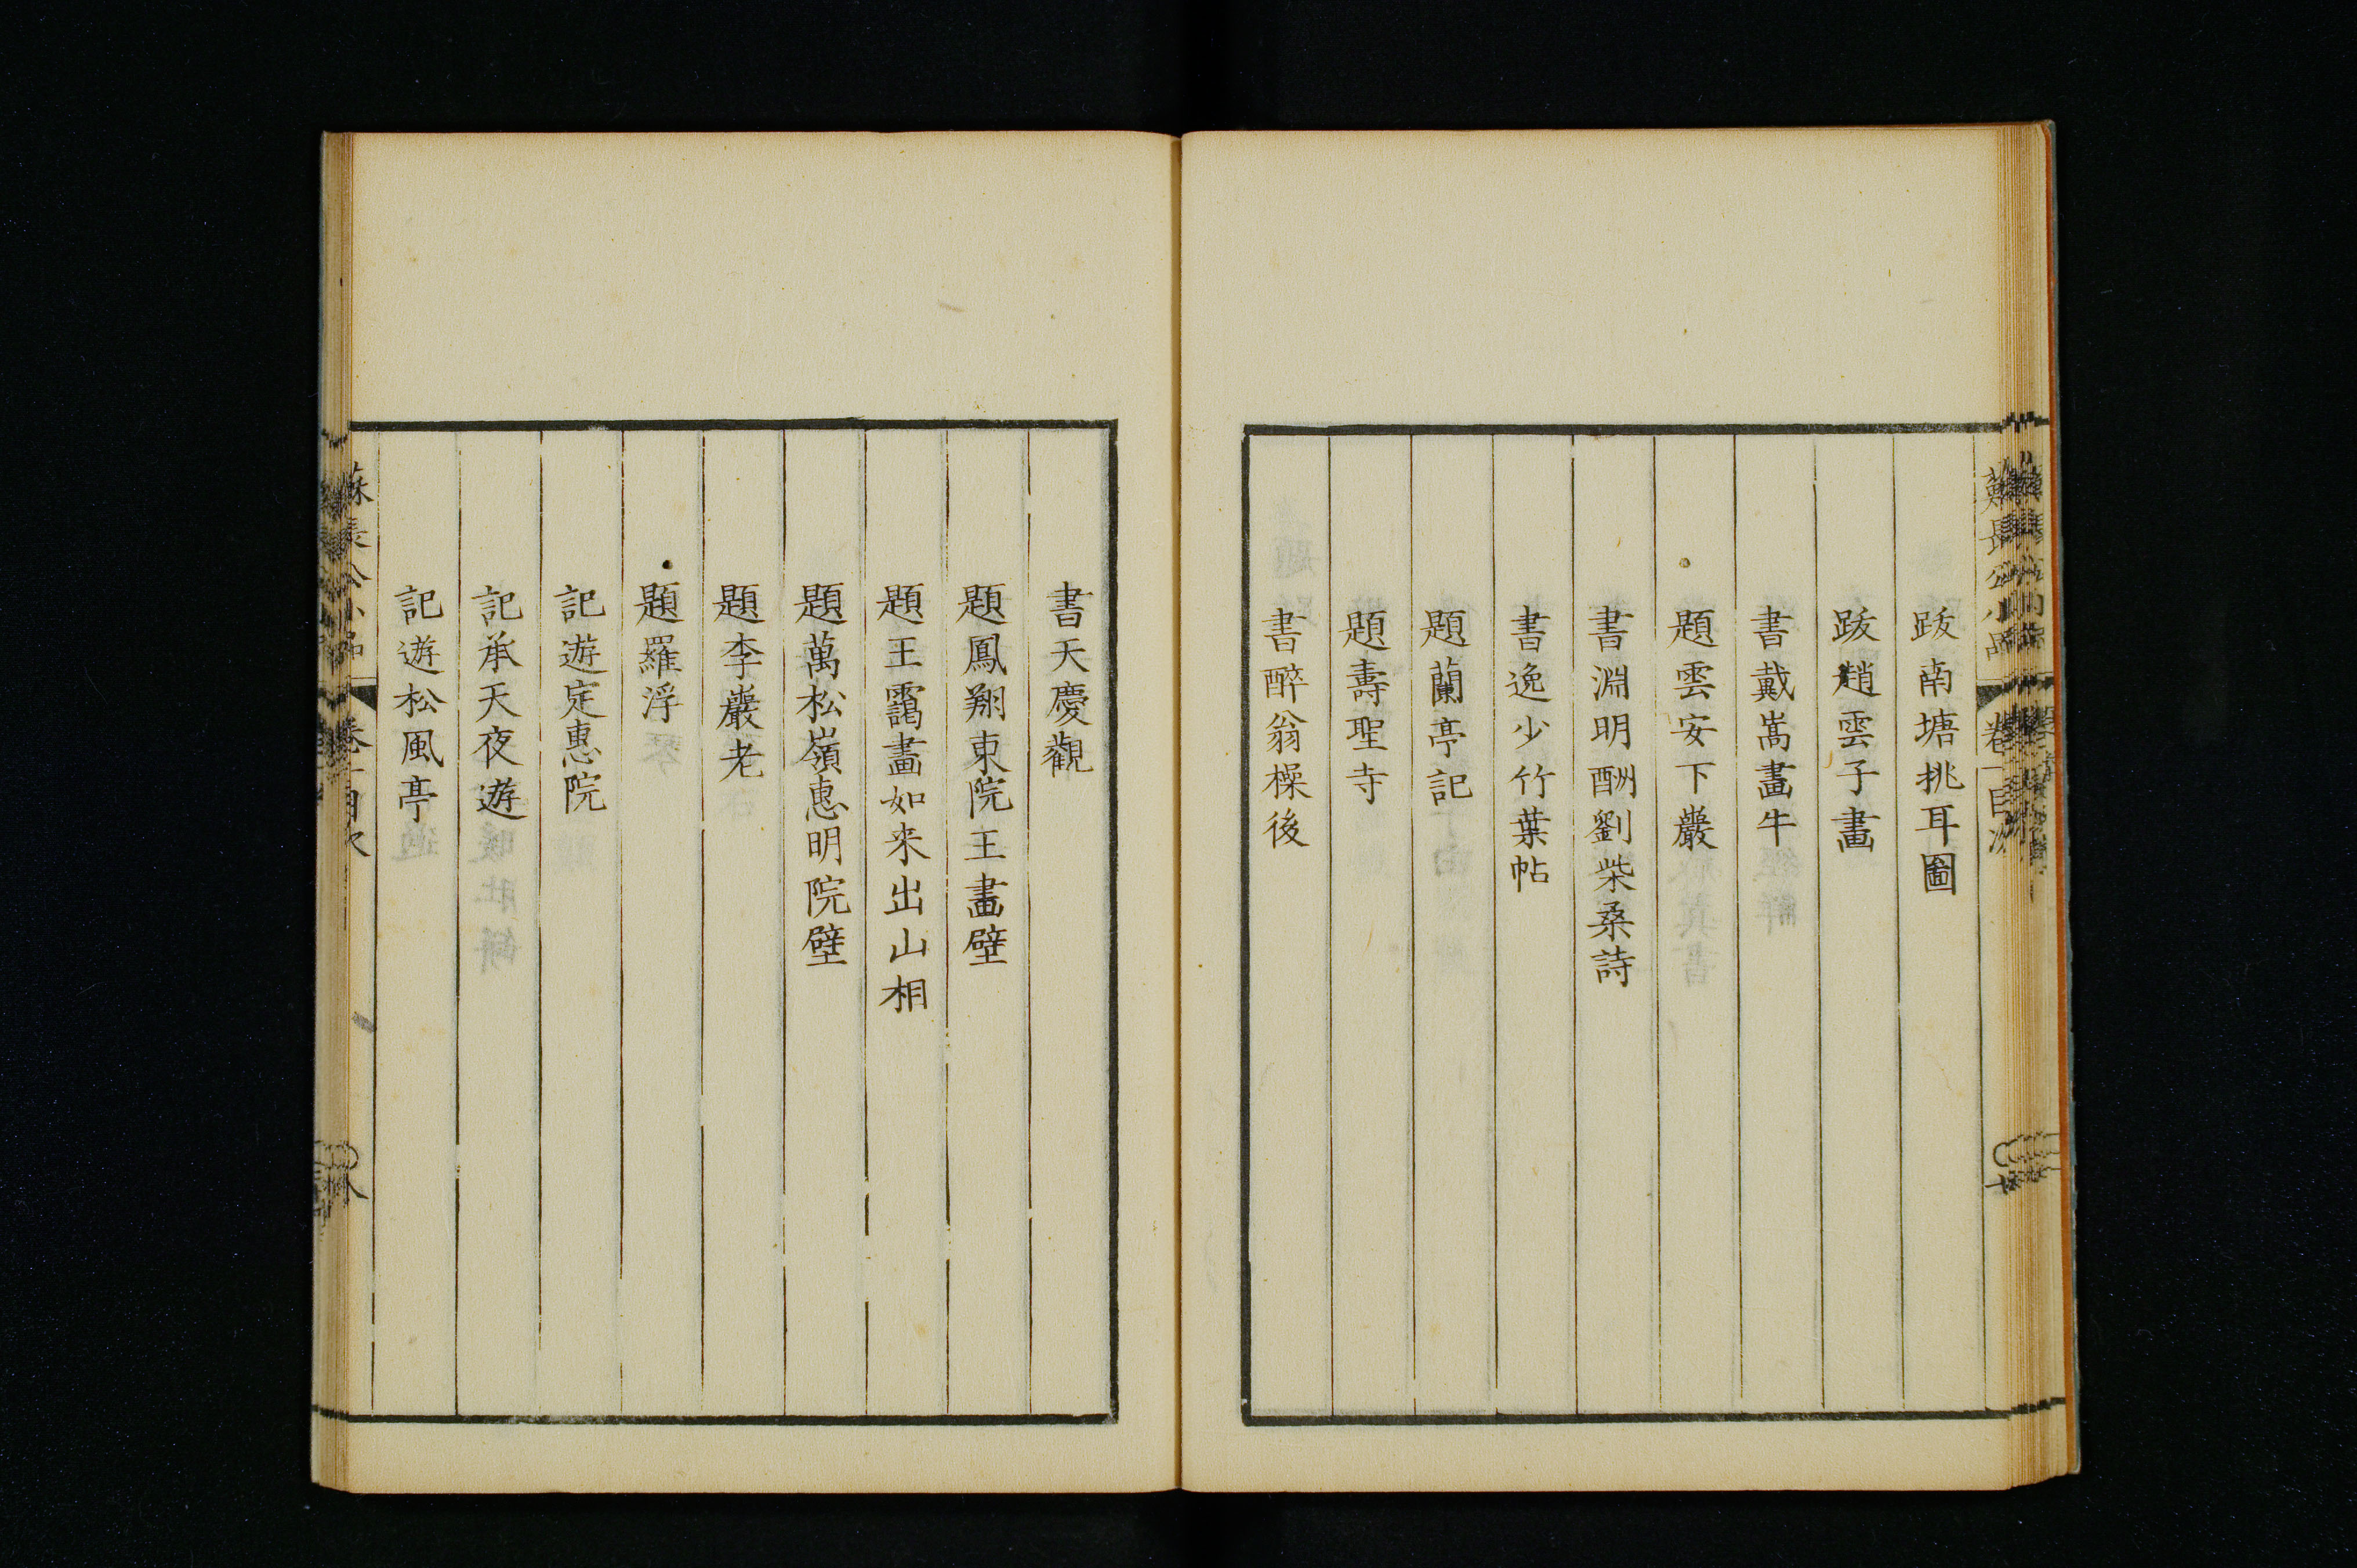 跋南塘挑耳圖
跋趙雲子畫
書戴嵩畫牛
題雲安下巖
書淵明酬劉柴桑詩
書逸少竹葉帖
題蘭亭記
題壽聖寺
書醉翁操後
書天慶觀
題鳳翔東院王畫壁
題王靄畫如来出山相
題萬松嶺惠明院壁
題李巖老
題羅浮
記遊定惠院
記承天夜遊
記遊松風亭
蘇長公小品
卷一目次